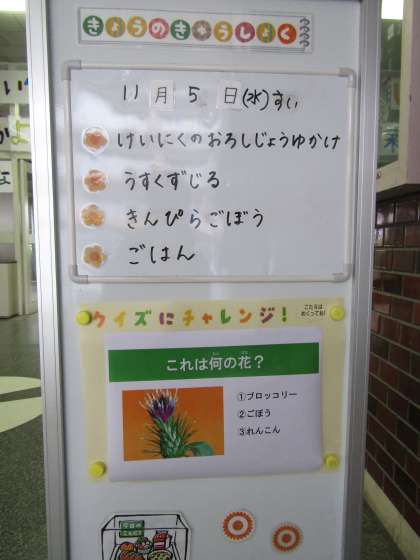 きょうのきゅうしょく
11月5日(水)すい
けいにくのおろしじょうゆかけ
うすくずじる
きんぴらごぼう
ごはん
クイズにチャレンジ!
こたえは
めくってね!
これは何の花?
①ブロッコリー
②ごぼう
③れんこん